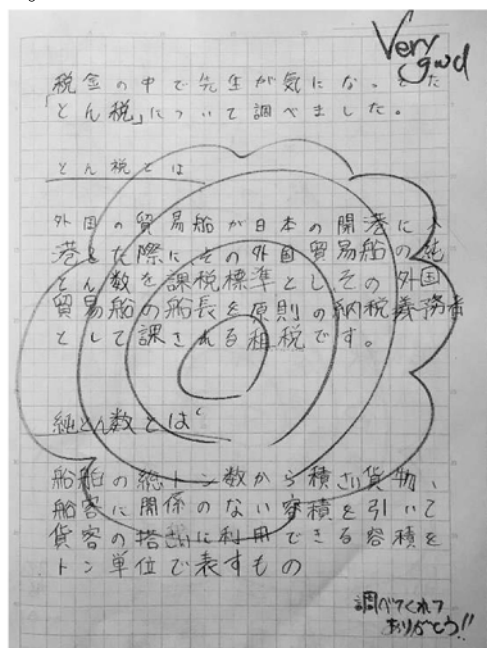 Very
good
税金の中で先生が気になっていた
「とん税」について調べました。
とん税とは
外国の貿易船が日本の開港に入
港した際にその外国貿易船の純
とん数を課税標準としその外国
貿易船の船長を原則の納税義務者
として課される租税です。
純とん数とは
船舶の総トン数から積さい貨物、
船客に関係のない容積を引いて
貨客の搭さいに利用できる容積を
トン単位で表すもの
調べてくれて
ありがとう!!